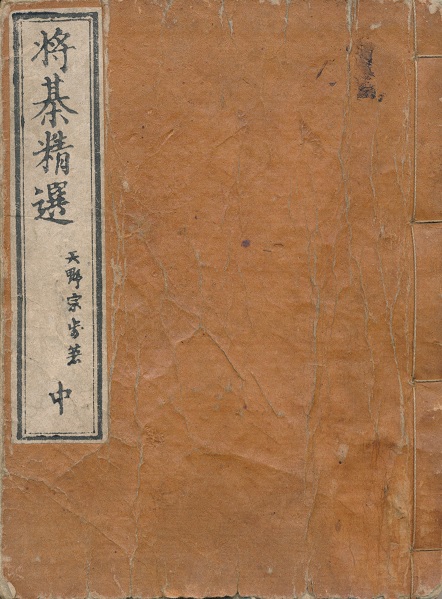 将棊精選
天野宗歩著
中